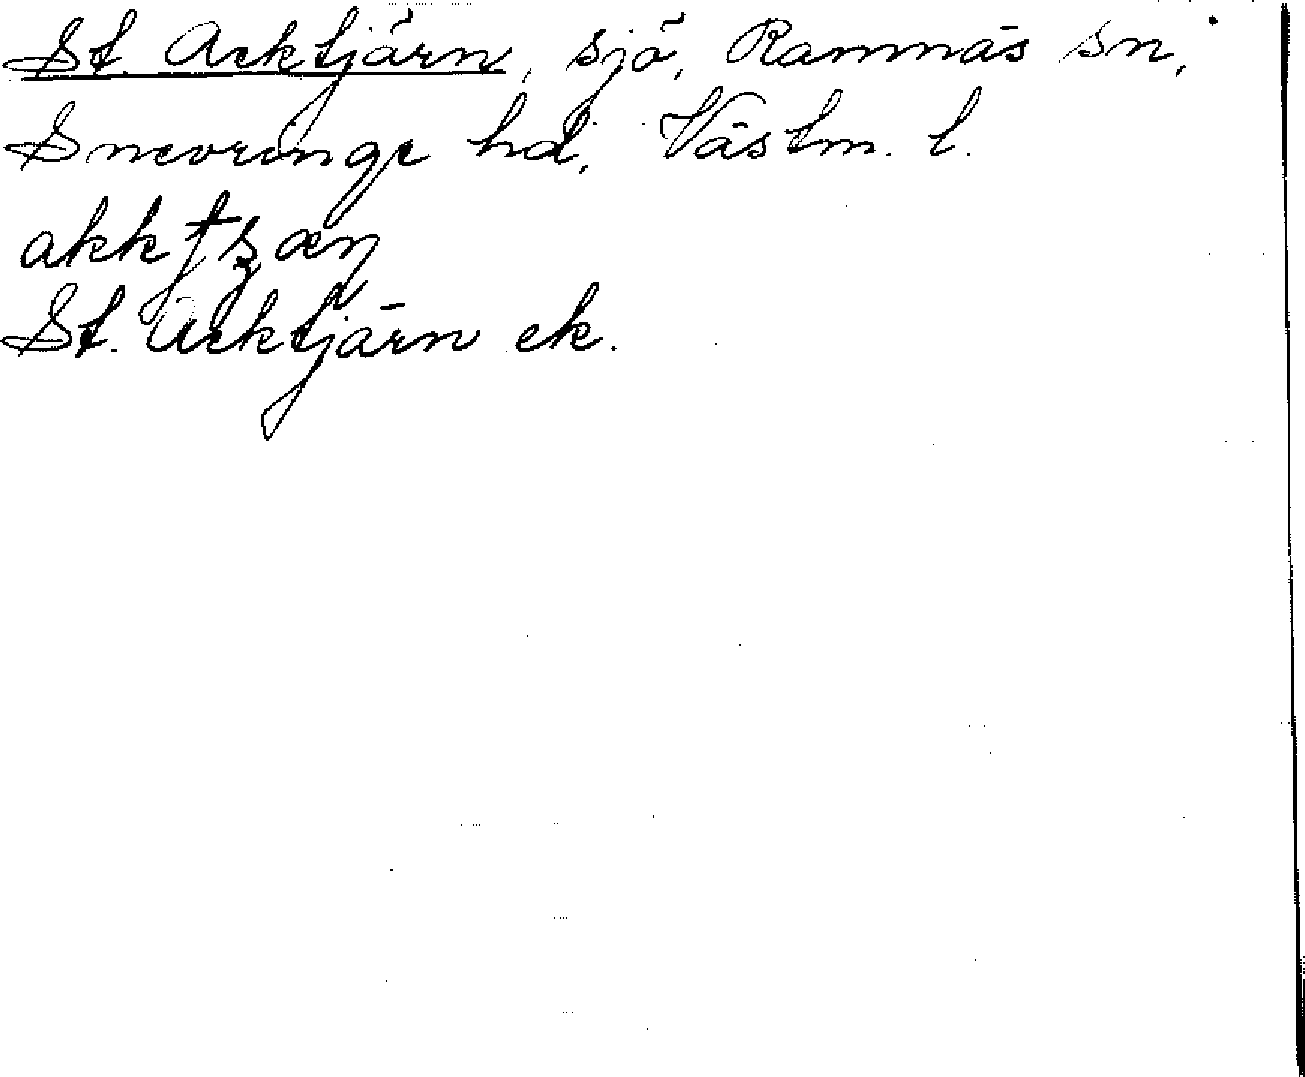 St. Acktjärn, sjö, Ramnäs sn,
Snevringe hd, Västm. l.
St. Acktjärn ek.